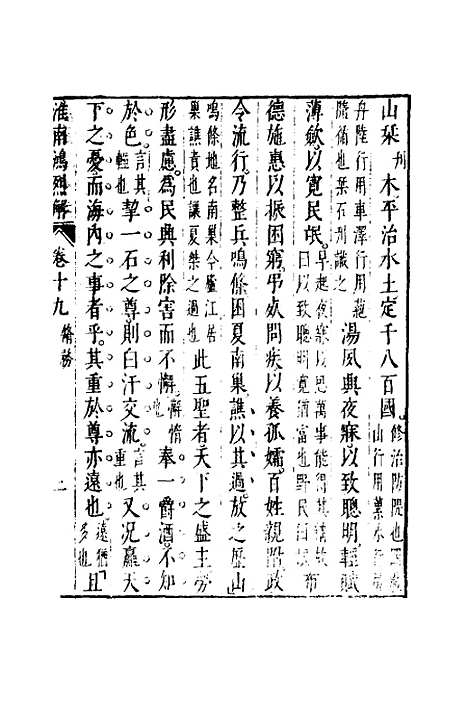 山栞刋木平治水土定千八百國修治防隄也四載山行用蔂水行用
舟陸行用車澤行用蕝隨循也栞石刋識之湯夙興夜寐以致聰明輕賦
薄斂以寬民氓早起夜寐以思萬事能得其精故曰以致聰明寬猶富也野民曰氓布
德施惠以振困窮弔死問疾以養孤孀百姓親附政
令流行乃整兵鳴條困夏南巢譙以其過放之歷山
鳴條地名南巢今廬江居巢譙責也讓夏桀之過此五聖者天下之盛主勞
形盡慮爲民興利除害而不懈懈惰也奉一爵酒不知
於色言其輕也挈一石之尊則白汗交流言其重也又况贏天
下之憂而海內之事者乎其重於尊亦遠也遠猶多也且
淮南鴻烈解 卷十九 脩務 二